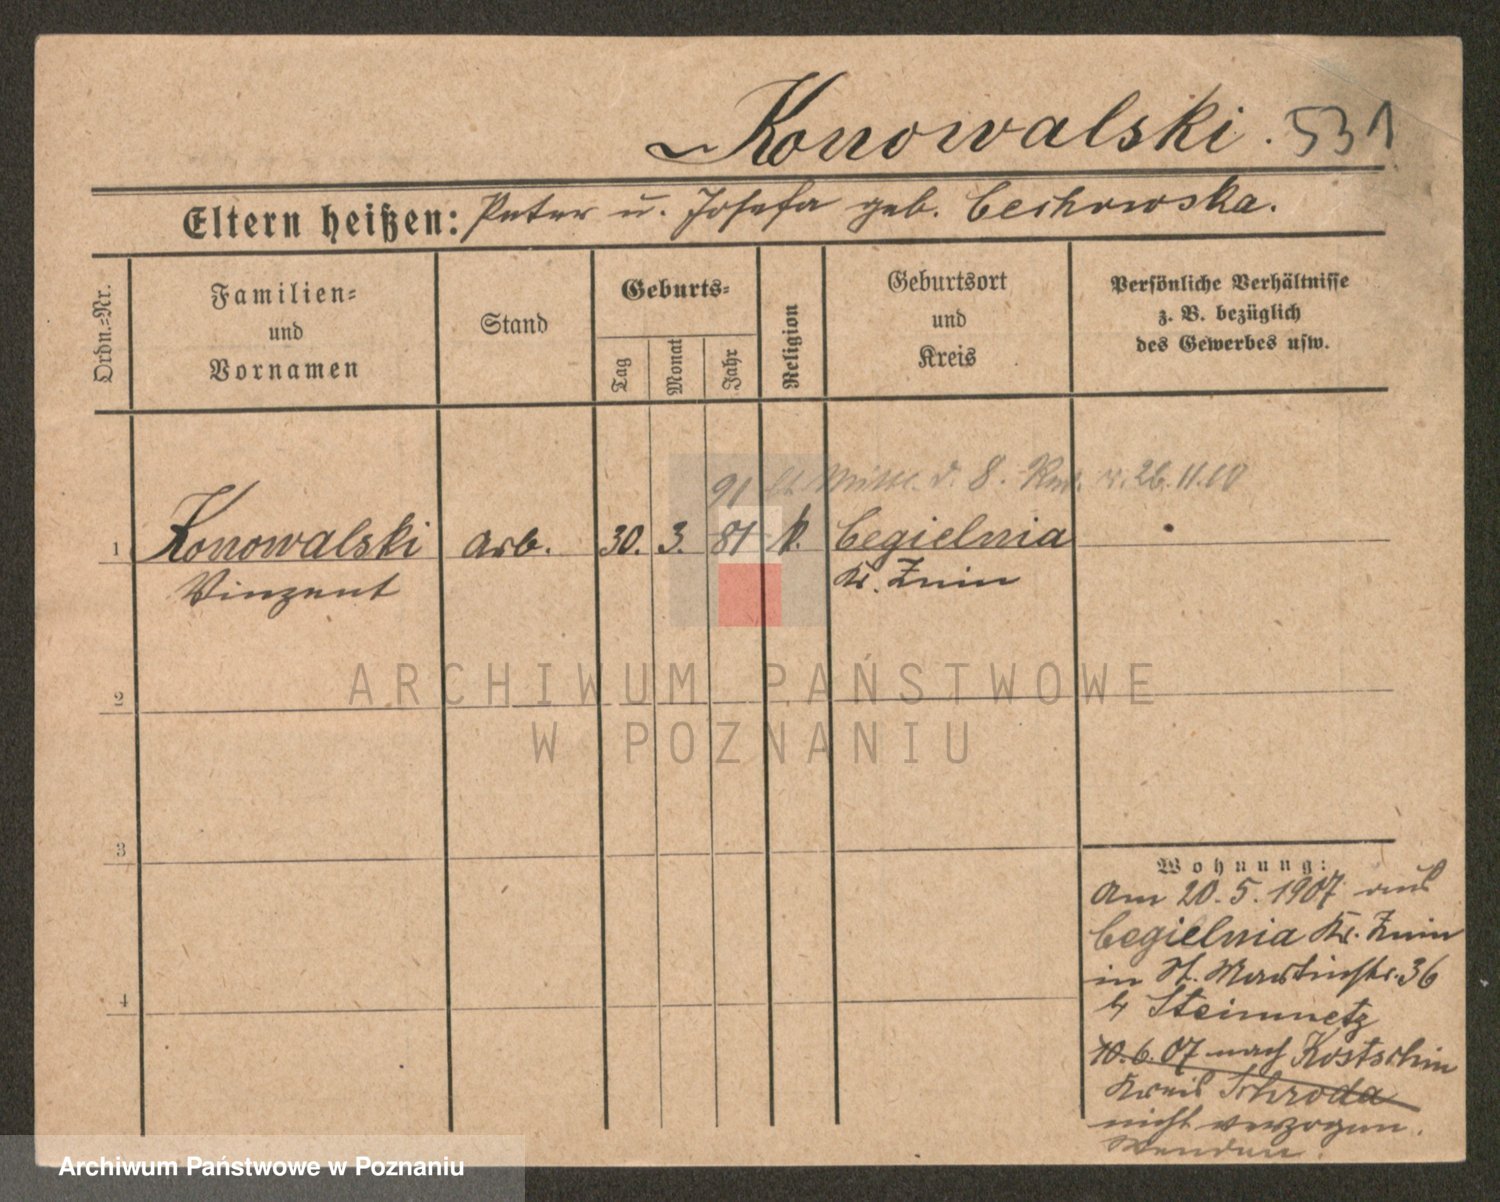 Konowalski. 531
Eltern heißen: Peter u. Josefa geb. Cechowska.
Ordn.=Nr.
Familien= und Vornamen
Stand
Geburts=
Tag
Monat
Jahr
Religion
Geburtsort und Kreis
Persönliche Verhältnisse
z. B. bezüglich
des Gewerbes usw.
91 lt Mittl. d. 8. v. 26.11.10
1 Konowalski Arb. 30. 3. 81 k. Cegielnia
Vinzent Kr. Znin
2
3
4
Wohnung:
Am 20.5.1907 aus
Cegielnia Kr. Znin
in St. Martinstr. 36
b/ Steinmetz
10.6.07 nach Kostschin
Kreis Schroda
nicht verzogen.
Wenden.
ARCHIWUM PAŃSTWOWE
W POZNANIU
Archiwum Państwowe w Poznaniu